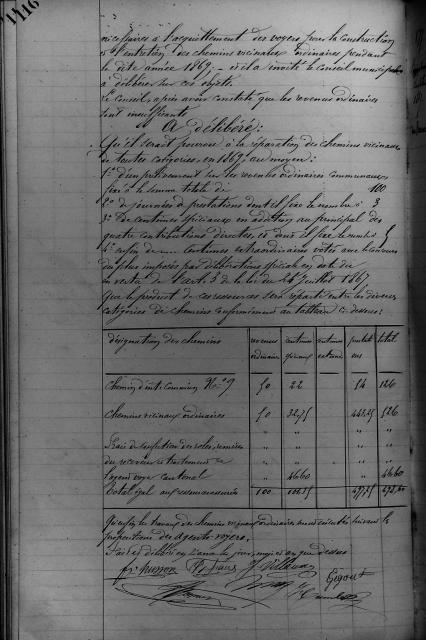 1116
nécessaires à l'acquittement des voyers pour la construction
et l'entretien des chemins vicinaux ordinaires pendant
la dite année 1869, et il a invité le Conseil municipal
à délibérer sur ces objets.
Le Conseil, après avoir constaté que les revenus ordinaires
sont insuffisants
A délibéré:
Qu'il serait pourvu à la réparation des chemins vicinaux
de toutes catégories, en 1869, au moyen:
1° d'un prélèvement sur les revenus ordinaires communaux
fixé à la somme totale de 100
2° de journées de prestations dont il fixe le nombre à 3
3° De centimes spéciaux en addition au principal des
quatre contributions directes, et dont il fixe le nombre à 5
4° enfin de centimes extraordinaires votés avec le concours
des plus imposés par délibérations spéciale en date du
en vertu de l'art. 3 de la loi du 24 Juillet 1867
Que le produit de ces ressources sera réparti entre les diverses
catégories de chemins conformément au tableau ci-dessus:
désignation des chemins revenus ordinaires centimes spéciaux centimes extraord. prestations total
Chemin d'int. commun No. 9 50 22 54 126
Chemins vicinaux ordinaires 50 526
Frais de confection des rôles, remises
du receveur et traitement de
l'agent voyer cantonal " 4660 " 4660
Total égal aux ressources 100
Que les travaux des chemins vicinaux ordinaires
propositions des agents voyers.
Fait et délibéré les jour, mois et an que dessus
husson Villaume
Gigout